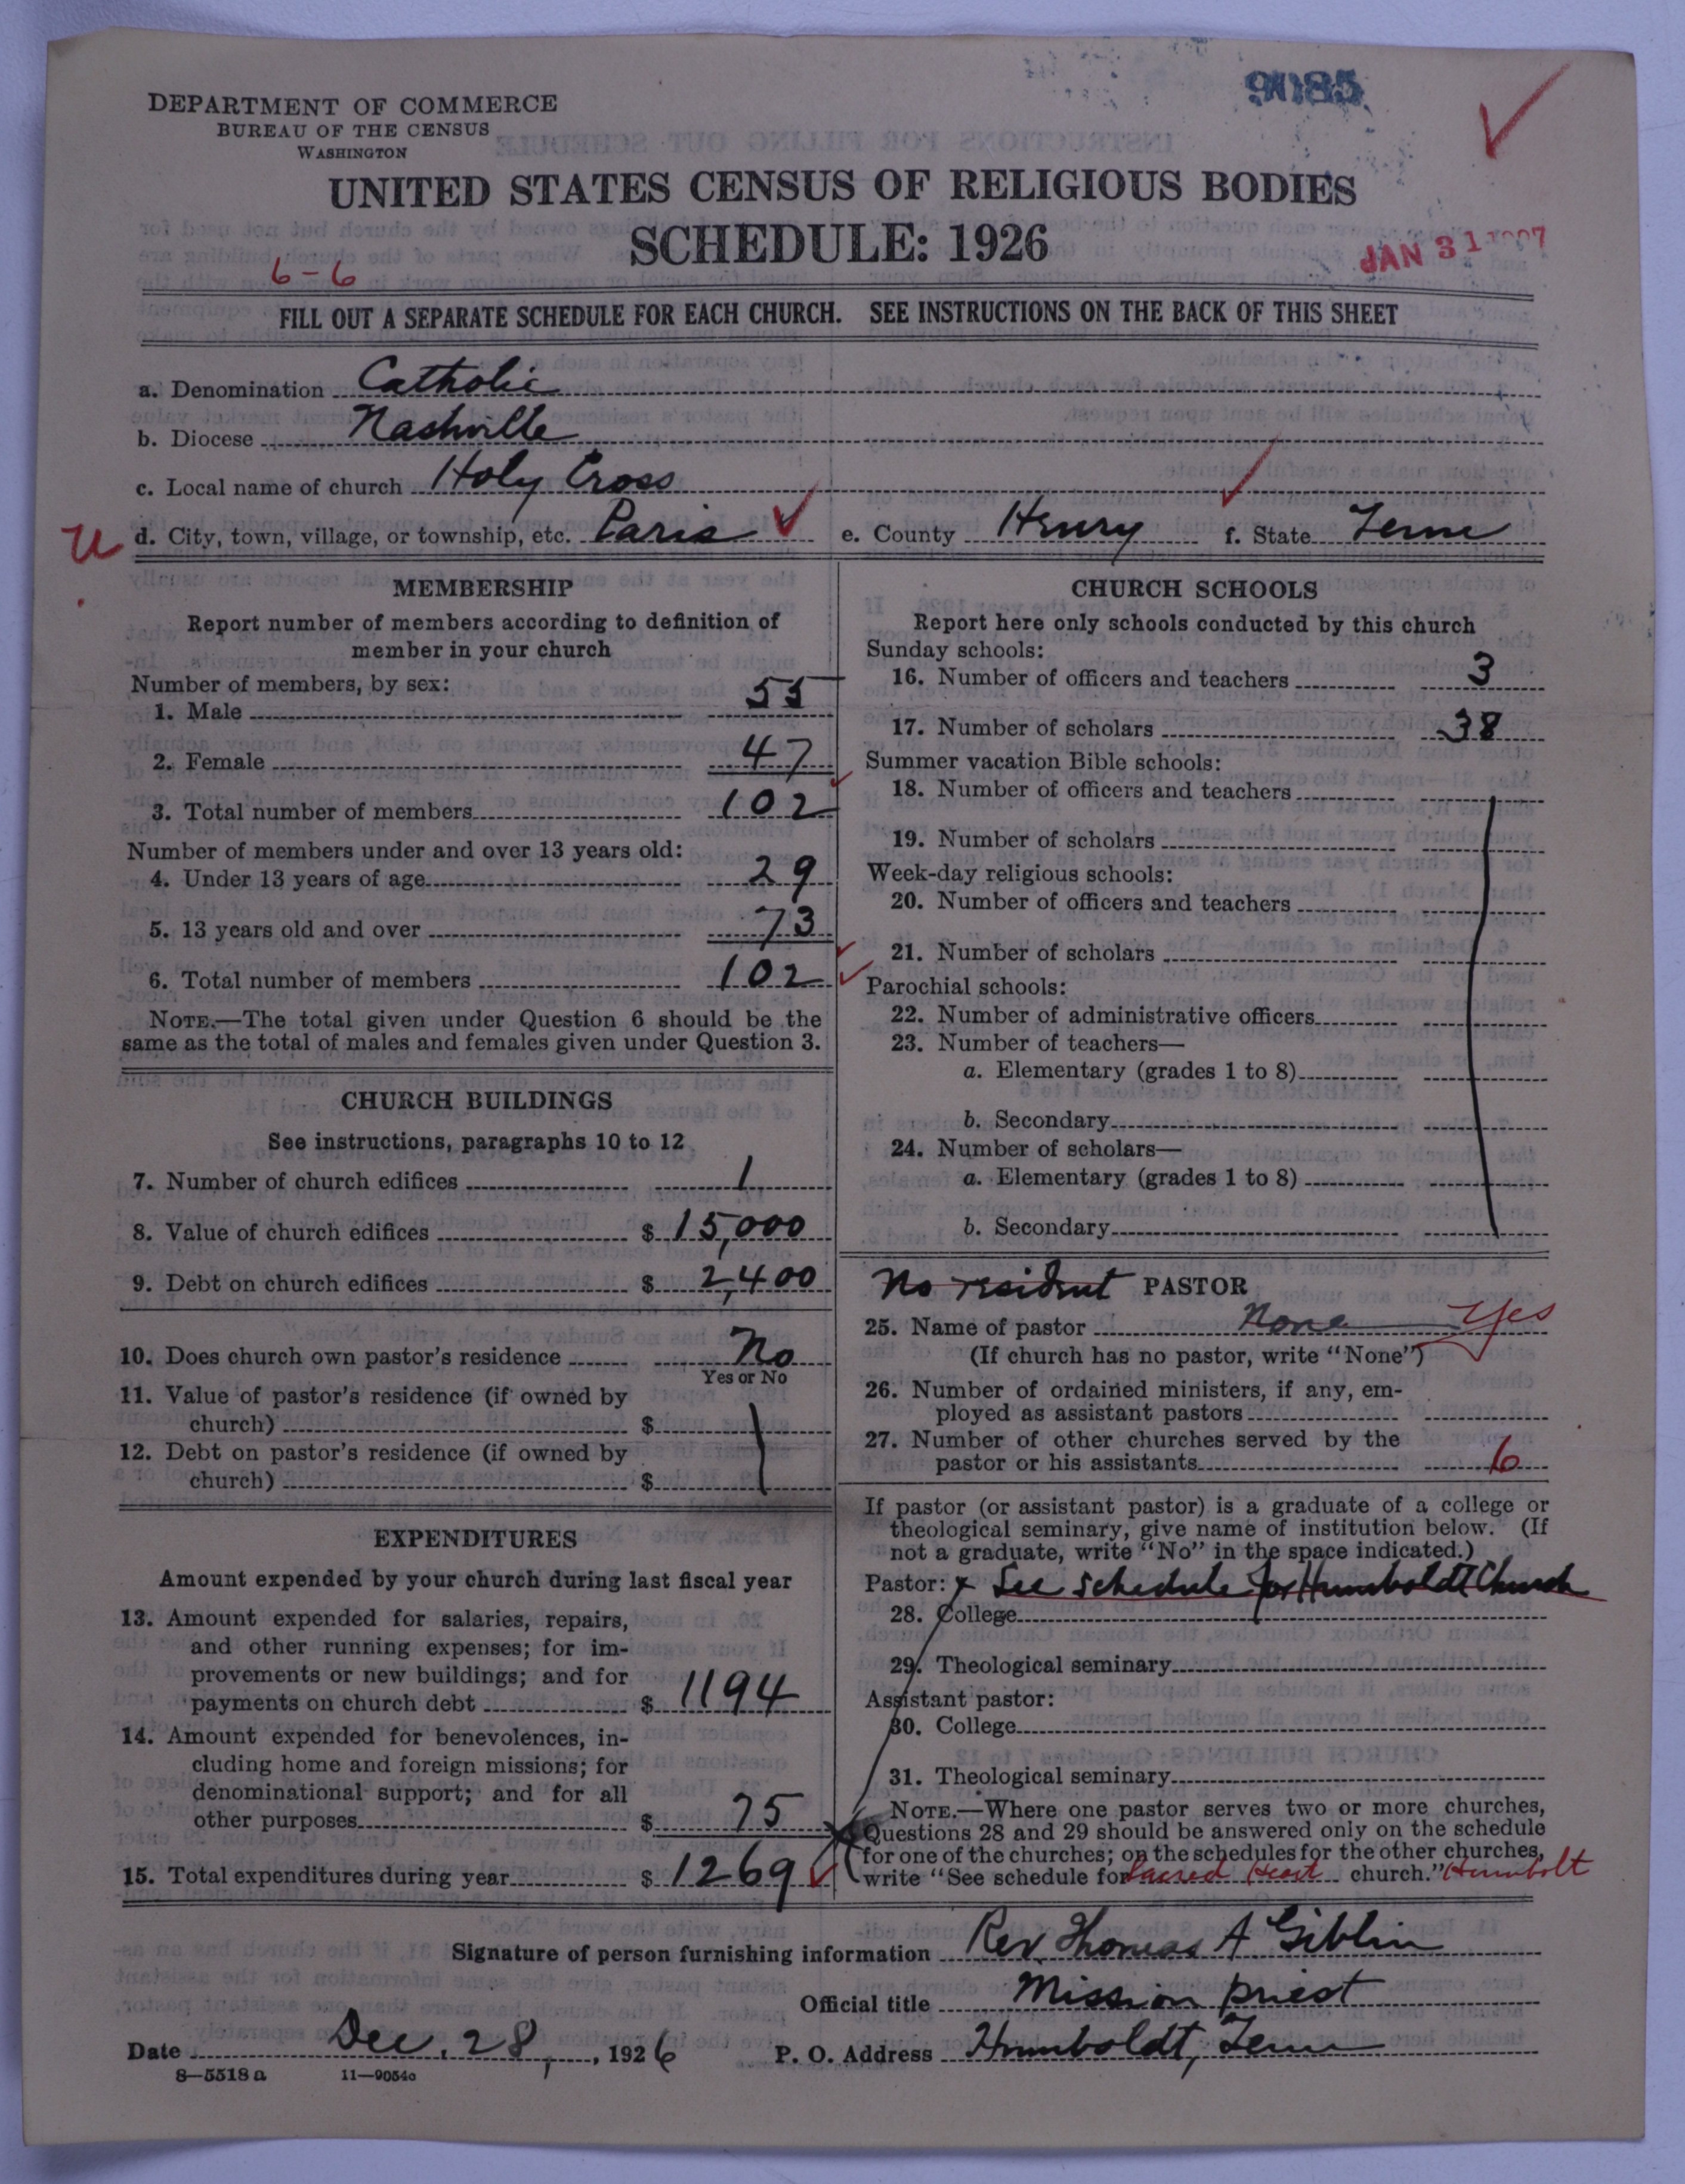 9085
DEPARTMENT OF COMMERCE
BUREAU OF THE CENSUS
WASHINGTON
UNITED STATES CENSUS OF RELIGIOUS BODIES
SCHEDULE: 1926
JAN 31
6-6
FILL OUT A SEPARATE SCHEDULE FOR EACH CHURCH. SEE INSTRUCTIONS ON THE BACK OF THIS SHEET
a. Denomination Catholic
b. Diocese Nashville
c. Local name of church Holy Cross
U d. City, town, village, or township, etc. Paris e. County Henry f. State Tenn
MEMBERSHIP
Report number of members according to definition of
member in your church
Number of members, by sex:
1. Male 55
2. Female 47
3. Total number of members 102
Number of members under and over 13 years old:
4. Under 13 years of age 29
5. 13 years old and over 73
6. Total number of members 102
NOTE.—The total given under Question 6 should be the
same as the total of males and females given under Question 3.
CHURCH BUILDINGS
See instructions, paragraphs 10 to 12
7. Number of church edifices 1
8. Value of church edifices $ 15,000
9. Debt on church edifices $ 2,400
10. Does church own pastor's residence No
Yes or No
11. Value of pastor's residence (if owned by
church) $
12. Debt on pastor's residence (if owned by
church) $
EXPENDITURES
Amount expended by your church during last fiscal year
13. Amount expended for salaries, repairs,
and other running expenses; for im-
provements or new buildings; and for
payments on church debt $ 1194
14. Amount expended for benevolences, in-
cluding home and foreign missions; for
denominational support; and for all
other purposes $ 75
15. Total expenditures during year $ 1269
CHURCH SCHOOLS
Report here only schools conducted by this church
Sunday schools:
16. Number of officers and teachers 3
17. Number of scholars 38
Summer vacation Bible schools:
18. Number of officers and teachers
19. Number of scholars
Week-day religious schools:
20. Number of officers and teachers
21. Number of scholars
Parochial schools:
22. Number of administrative officers
23. Number of teachers—
a. Elementary (grades 1 to 8)
b. Secondary
24. Number of scholars—
a. Elementary (grades 1 to 8)
b. Secondary
No resident PASTOR
25. Name of pastor None Yes
(If church has no pastor, write "None")
26. Number of ordained ministers, if any, em-
ployed as assistant pastors
27. Number of other churches served by the
pastor or his assistants 6
If pastor (or assistant pastor) is a graduate of a college or
theological seminary, give name of institution below. (If
not a graduate, write "No" in the space indicated.)
Pastor: x See schedule for Humboldt Church
28. College
29. Theological seminary
Assistant pastor:
30. College
31. Theological seminary
NOTE.—Where one pastor serves two or more churches,
Questions 28 and 29 should be answered only on the schedule
for one of the churches; on the schedules for the other churches,
write "See schedule for Sacred Heart church." Humbolt
Signature of person furnishing information Rev Thomas A Giblin
Official title Mission priest
Date Dec. 28, 1926 P. O. Address Humboldt, Tenn
8—5518 a 11—9054c